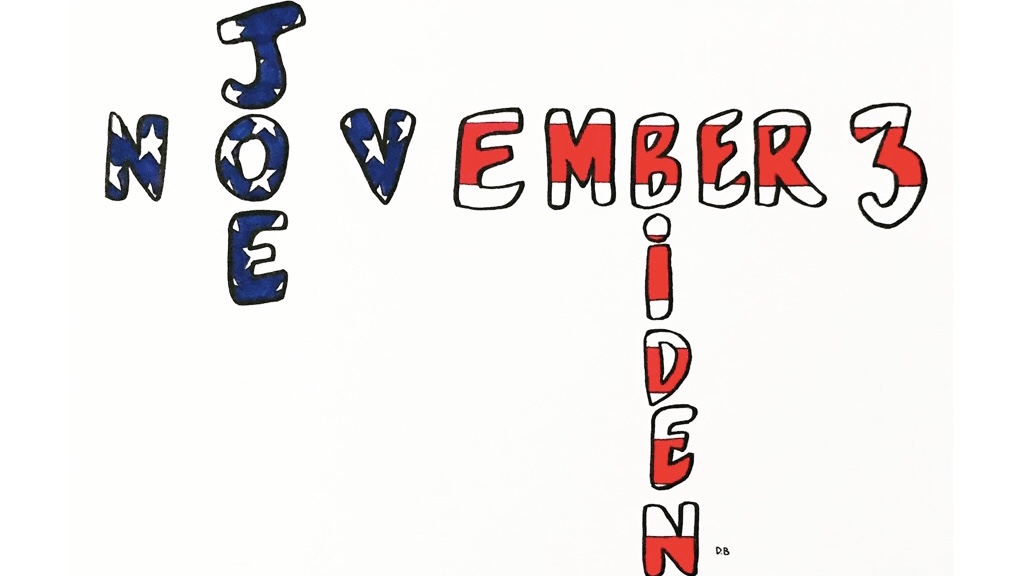 JOE
NOVEMBER 3
BiDEN
D.B